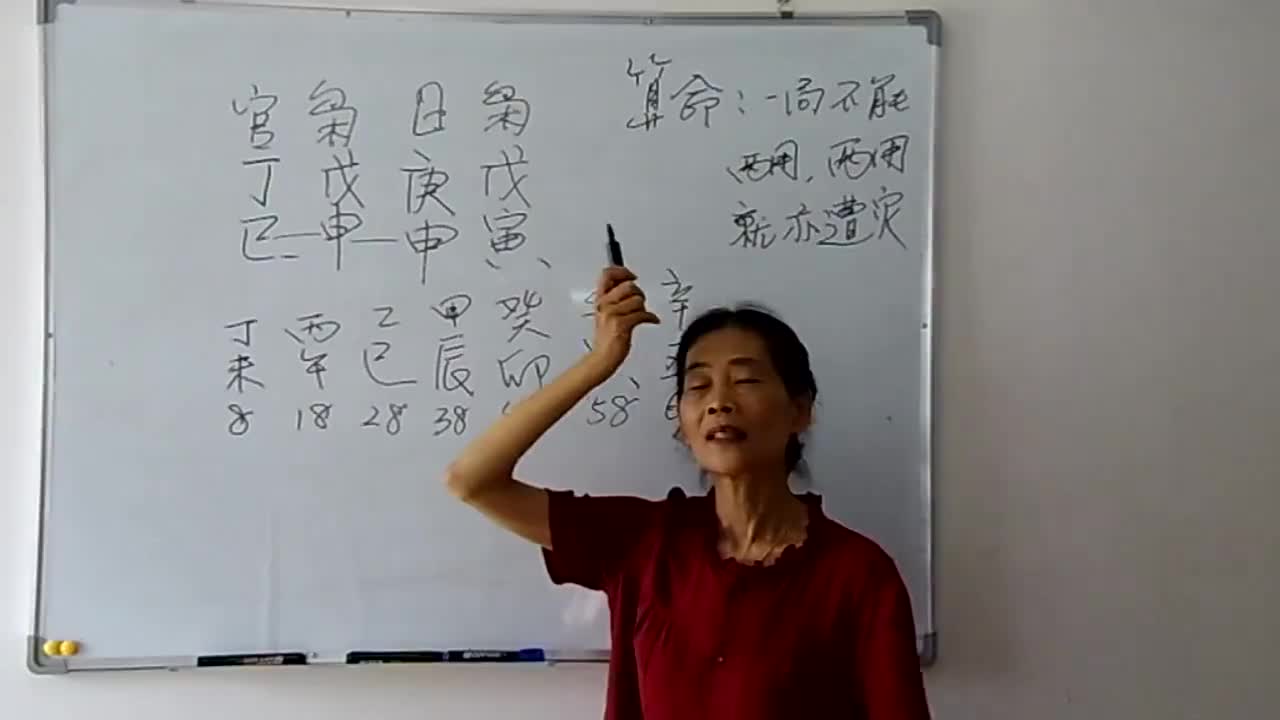 官 枭 日 枭
丁 戊 庚 戊
巳 申 申 寅
算命：一局不能
两用，两用
就亦遭灾
丁 丙 乙 甲 癸 辛
未 午 巳 辰 卯
8 18 28 38 58